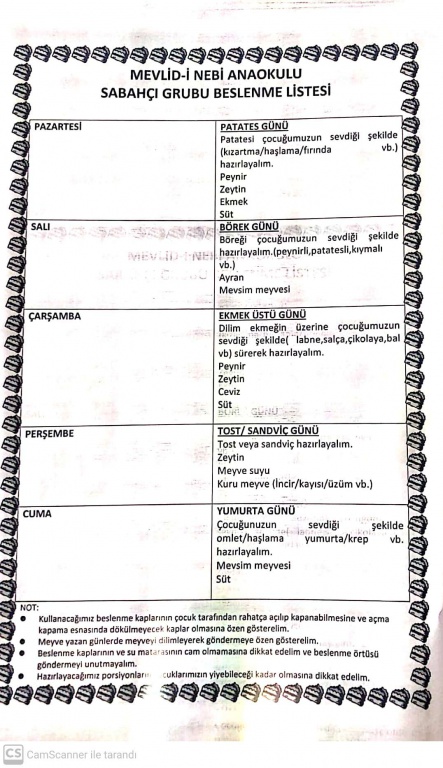 MEVLİD-İ NEBİ ANAOKULU
SABAHÇI GRUBU BESLENME LİSTESİ
PAZARTESİ
PATATES GÜNÜ
Patatesi çocuğumuzun sevdiği şekilde
(kızartma/haşlama/fırında vb.)
hazırlayalım.
Peynir
Zeytin
Ekmek
Süt
SALI
BÖREK GÜNÜ
Böreği çocuğumuzun sevdiği şekilde
hazırlayalım.(peynirli,patatesli,kıymalı
vb.)
Ayran
Mevsim meyvesi
ÇARŞAMBA
EKMEK ÜSTÜ GÜNÜ
Dilim ekmeğin üzerine çocuğumuzun
sevdiği şekilde( labne,salça,çikolaya,bal
vb) sürerek hazırlayalım.
Peynir
Zeytin
Ceviz
Süt
PERŞEMBE
TOST/ SANDVİÇ GÜNÜ
Tost veya sandviç hazırlayalım.
Zeytin
Meyve suyu
Kuru meyve (İncir/kayısı/üzüm vb.)
CUMA
YUMURTA GÜNÜ
Çocuğunuzun sevdiği şekilde
omlet/haşlama yumurta/krep vb.
hazırlayalım.
Mevsim meyvesi
Süt
NOT:
• Kullanacağımız beslenme kaplarının çocuk tarafından rahatça açılıp kapanabilmesine ve açma
kapama esnasında dökülmeyecek kaplar olmasına özen gösterelim.
• Meyve yazan günlerde meyveyi dilimleyerek göndermeye özen gösterelim.
• Beslenme kaplarının ve su matarasının cam olmamasına dikkat edelim ve beslenme örtüsü
göndermeyi unutmayalım.
• Hazırlayacağımız porsiyonların çocuklarımızın yiyebileceği kadar olmasına dikkat edelim.
CS CamScanner ile tarandı